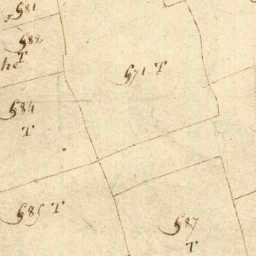 581
582
T
he
571 T
584
T
585 T
587
T